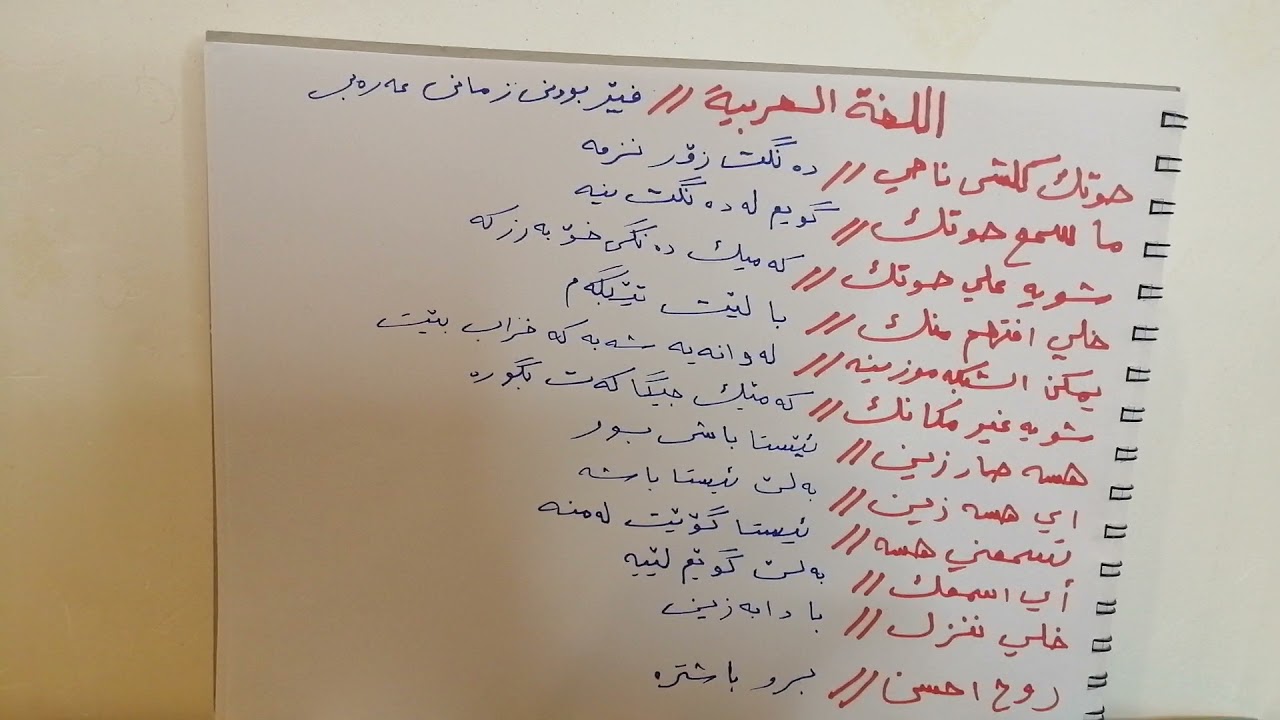 اللغة العربية // فێر بوونی زمانی عەرەبی
صوتك كلش ناصي // دەنگت زۆر نزمە
ما اسمع صوتك // گویم لە دەنگت نیە
شویە علي صوتك // کەمێك دەنگی خۆ بەرزکە
خلي افتهم منك // با لێت تێبگەم
يمكن الشبكه موزينه // لەوانەیە شەبەکە خراب بێت
شويه غير مكانك // کەمێك جێگاکەت بگورە
هسه صار زين // ئێستا باش بوو
اي هسه زين // بەلێ ئیستا باشە
تسمعني هسه // ئیستا گۆێت لەمنە
أي اسمعك // بەلێ گوێم لێیە
خلي ننزل // با دابەزین
روح احسن // برو باشترە